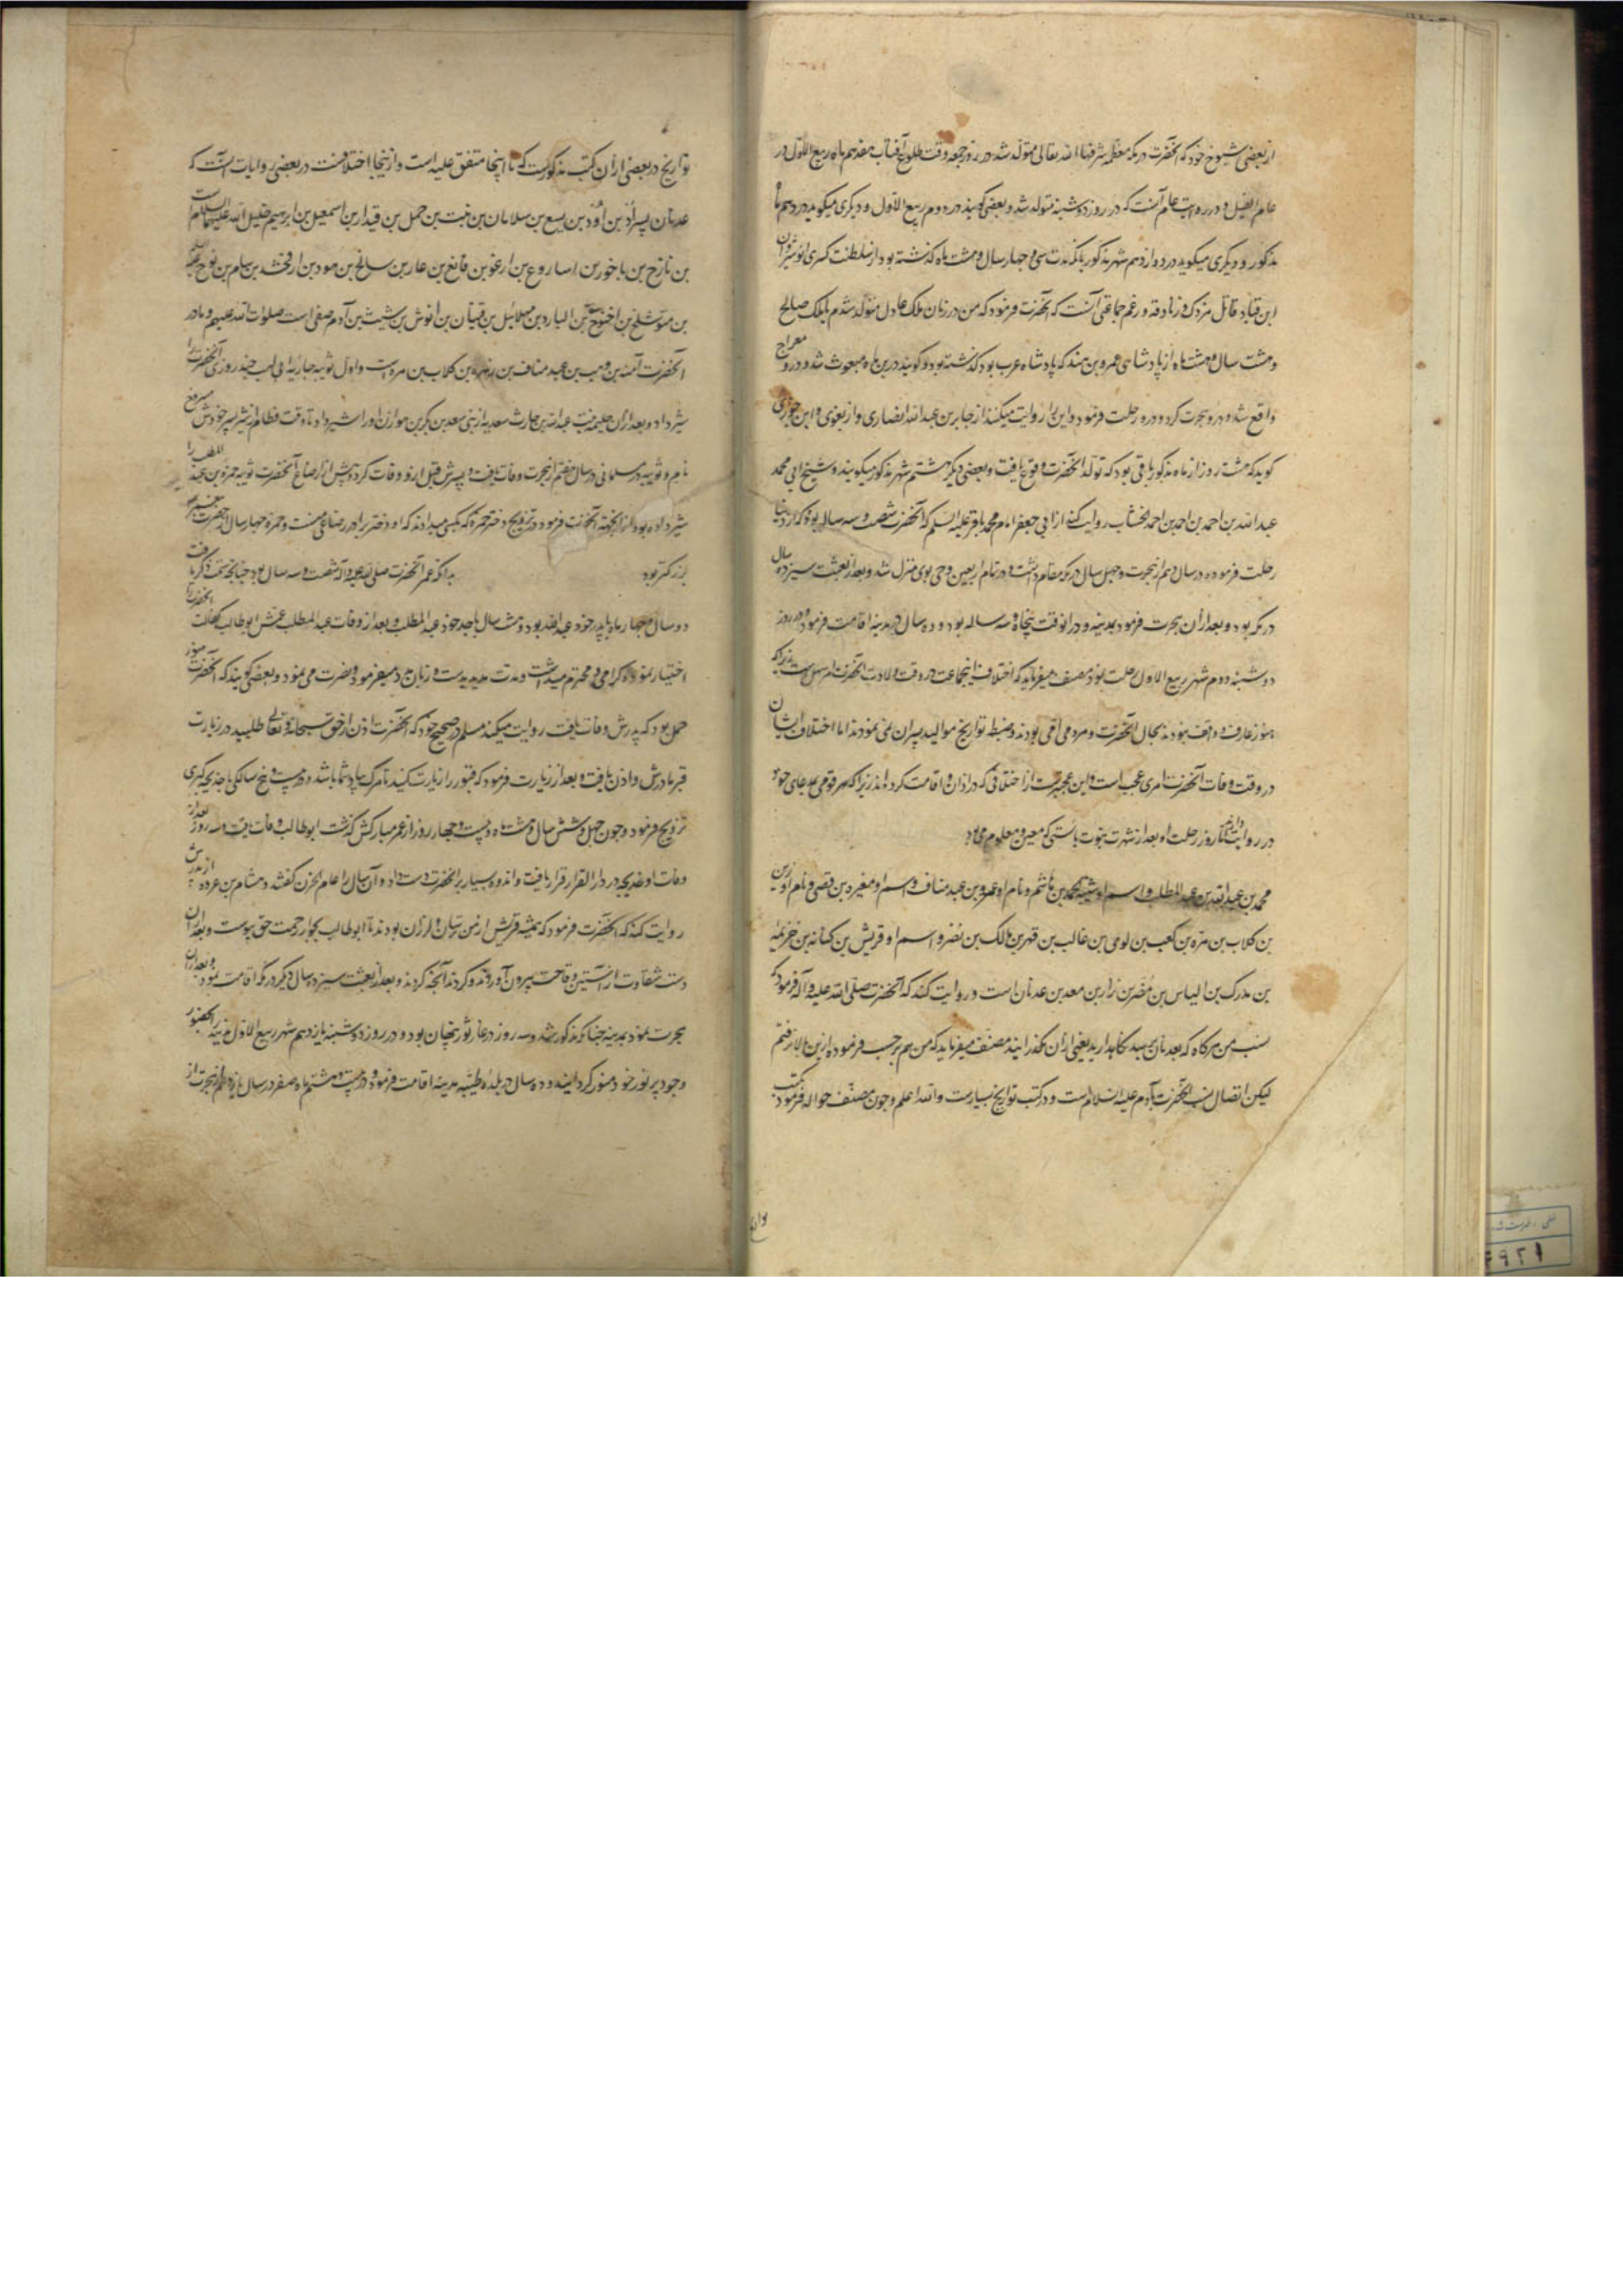 از بعضی شیوخ خود که آنحضرت در مکه معظمه شرفها الله تعالی متولد شد در روز جمعه وقت طلوع آفتاب هفدهم ماه ربیع الاول در
عام الفیل و در روایت عام آنست که در روز دوشنبه متولد شد و بعضی گویند در دوم ربیع الاول و دیگری میگوید در دهم ماه
مذکور و دیگری میگوید در دوازدهم شهر مذکور بانکه مدت سی و چهار سال و هشت ماه گذشته بود از سلطنت کسری انوشیروان
ابن قباد قاتل مزدک و زنادقه و زعم جماعتی آنست که آنحضرت فرمود که من در زمان ملک عادل متولد شدم یا ملک صالح
و هشت سال و هشت ماه از پادشاهی عمرو بن هند که پادشاه عرب بود گذشته بود و گویند درین ماه مبعوث شد و درو معراج
واقع شد و درو هجرت کرد و درو رحلت فرمود و این را روایت میکنند از جابر بن عبد الله انصاری و از بغوی و ابن جوزی
گوید که هشت روز از ماه مذکور باقی بود که تولد آنحضرت وقوع یافت و بعضی دیگر هشتم شهر مذکور میگویند و شیخ ابی محمد
عبد الله بن احمد بن احمد بن احمد الخشاب روایت کند از ابی جعفر امام محمد باقر علیه السلم که آنحضرت شصت و سه ساله بود که از دنیا
رحلت فرموده در سال دهم از هجرت و چهل سال در مکه مقام داشت و در تمام اربعین وحی بوی منزل شد و بعد از بعثت سیزده سال
در مکه بود و بعد از آن هجرت فرمود بمدینه و در آنوقت پنجاه و سه ساله بود و ده سال در مدینه اقامت فرمود و در روز
دوشنبه دوم شهر ربیع الاول رحلت نمود مصنف میفرماید که اختلاف اینجماعت در وقت ولادت آنحضرت امر سهل است زیرا که
هنوز عارف و واقف نبودند بحال آنحضرت و مردمی امی بودند و ضبط تواریخ موالید پسران نمی نمودند اما اختلاف ایشان
در وقت وفات آنحضرت امری عجب است و این عجبتر است از اختلافی که در اذان و اقامت کرده اند زیرا که هر قومی
در روایت روز رحلت او بعد از شهرت نبوت بایستی که معین و معلوم می بود
محمد بن عبد الله بن عبد المطلب و اسم او شیبة الحمد بن هاشم و نام او عمرو بن عبد مناف و اسم او مغیره بن قصی و نام او زید
بن کلاب بن مره بن کعب بن لوی بن غالب بن فهر بن مالک بن نضر و اسم او قریش بن کنانه بن خزیمه
بن مدرکه بن الیاس بن مضر بن نزار بن معد بن عدنان است و روایت کنند که آنحضرت صلی الله علیه و آله فرمود که
نسب من هرگاه که بعدنان برسید نگاه دارید یعنی از آن مگذرانید مصنف میفرماید که من هم بر حسب فرموده ازین بالا نرفتم
لیکن اتصال نسب آنحضرت بآدم علیه السلام هست و در کتب تواریخ بسیارست و الله اعلم و چون مصنف حواله فرمود بکتب
تواریخ در بعضی از آن کتب مذکورست که تا اینجا متفق علیه است و از اینجا اختلافست در بعضی روایات آنست که
عدنان پسر ادد بن اود بن یسع بن سلامان بن نبت بن حمل بن قیدار بن اسمعیل بن ابرهیم خلیل الله علیهما السلام است
بن تارخ بن ناخور بن اساروغ بن ارغو بن فالغ بن عابر بن سالخ بن هود بن ارفخشد بن سام بن نوح
بن متوشلخ بن اخنوخ بن الیارد بن مهلائیل بن قینان بن انوش بن شیث بن آدم صفی است صلوات الله علیهم و مادر
آنحضرت آمنه بن وهب بن عبد مناف بن زهره بن کلاب بن مره است و اول ثویبه جاریه ابی لهب چند روزی آنحضرت را
شیر داد و بعد از آن حلیمه بنت عبد الله بن حارث سعدیه از بنی سعد بن بکر بن هوازن او را شیر داد تا وقت فطام از شیر پسر خودش مسروح
نام و ثویبه در مسلمانی در سال هفتم از هجرت وفات یافت و پسرش قبل ازو وفات کرد و پیش از ارضاع آنحضرت ثویبه حمزه بن عبد المطلب را
شیر داده بود از اینجهت آنحضرت فرمود در تزویج دختر حمزه که او دختر برادر رضاعی منست و حمزه چهار سال از حضرت
بزرگتر بود بدانکه عمر آنحضرت صلی الله علیه و آله شصت و سه سال بود چنانچه
دو سال و چهار ماه با پدر خود عبد الله بود و هشت سال با جد خود عبد المطلب و بعد از وفات عبد المطلب عمش ابو طالب کفالت آنحضرت را
اختیار نموده و گرامی و محترم میداشت و مدت مدید بدست و زبان و نصرت می نمود و بعضی گویند که آنحضرت هنوز
حمل بود که پدرش وفات یافت روایت میکند مسلم در صحیح خود که آنحضرت اذن از حق سبحانه و تعالی طلبید در زیارت
قبر مادرش و اذن یافت و بعد از زیارت فرمود که قبور را زیارت کنید تا مرگ بیاد شما باشد و در بیست و پنج سالگی با خدیجه کبری
تزویج فرمود و چون چهل و شش سال و هشت ماه و بیست و چهار روز از عمر مبارکش گذشت ابو طالب وفات یافت و سه روز بعد از
وفات او خدیجه در دار القرار قرار یافت و اندوه بسیار بر آنحضرت دست داد و آن سال را عام الحزن گفتند و هشام بن عروه از پدرش
روایت کند که آنحضرت فرمود که همیشه قریش از من ترسان و لرزان بودند تا ابو طالب بجوار رحمت حق پیوست و بعد از آن
دست شقاوت از آستین وقاحت بیرون آوردند و کردند آنچه کردند و بعد از بعثت سیزده سال دیگر در مکه اقامت نمود و بعد از آن
هجرت نمود بمدینه چنانکه مذکور شد و سه روز در غار ثور پنهان بود و در روز دوشنبه یازدهم شهر ربیع الاول مدینه را بحضور
وجود پر نور خود منور گردانید و ده سال در بلده طیبه مدینه اقامت فرمود و در بیست و هشتم ماه صفر در سال یازدهم از هجرت از